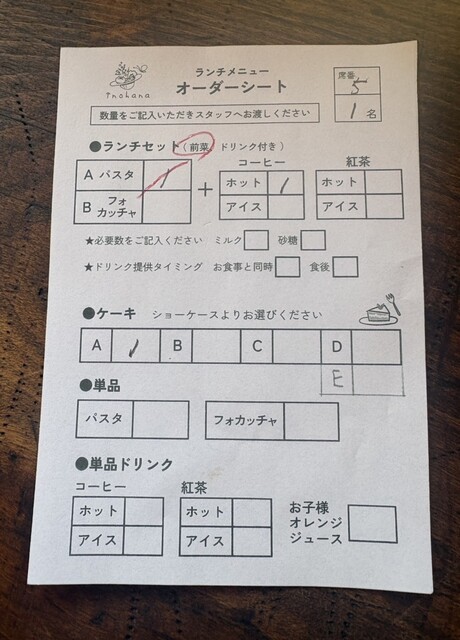 inohana
ランチメニュー
オーダーシート
席番 5
1 名
数量をご記入いただきスタッフへお渡しください
●ランチセット(前菜、ドリンク付き)
コーヒー 紅茶
A パスタ 1 + ホット 1 ホット
B フォカッチャ アイス アイス
★必要数をご記入ください ミルク 砂糖
★ドリンク提供タイミング お食事と同時 食後
●ケーキ ショーケースよりお選びください
A 1 B C D
E
●単品
パスタ フォカッチャ
●単品ドリンク
コーヒー 紅茶
ホット ホット
アイス アイス
お子様
オレンジ
ジュース